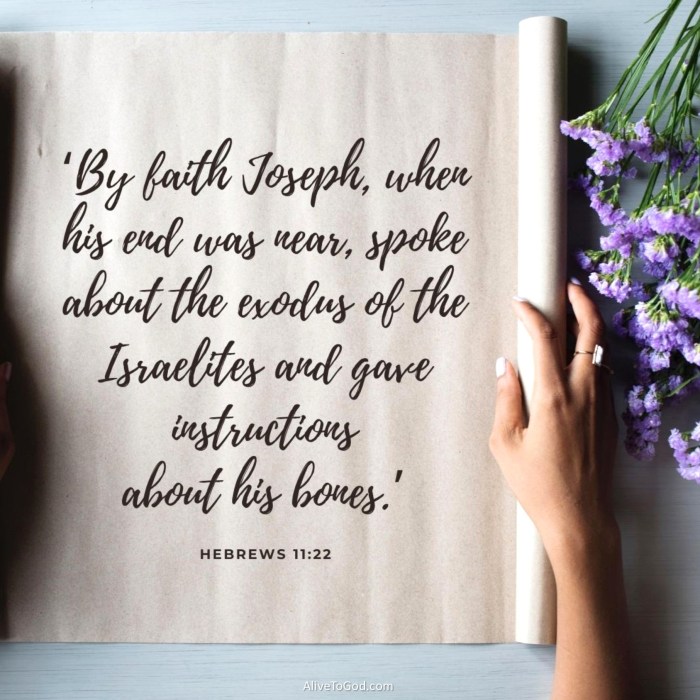 ‘By faith Joseph, when
his end was near, spoke
about the exodus of the
Israelites and gave
instructions
about his bones.’
HEBREWS 11:22
AliveToGod.com